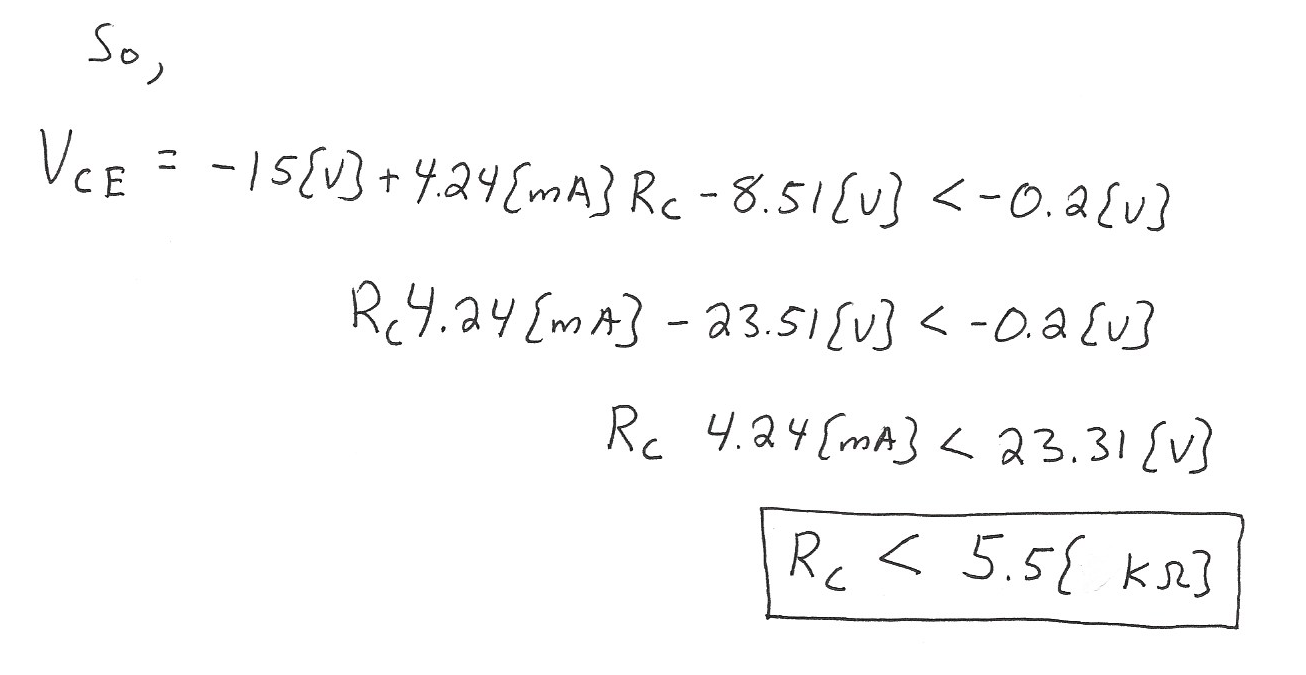 So,
V_CE = -15[V] + 4.24[mA] R_C - 8.51[V] < -0.2[V]
R_C 4.24[mA] - 23.51[V] < -0.2[V]
R_C 4.24[mA] < 23.31[V]
R_C < 5.5[ kΩ]